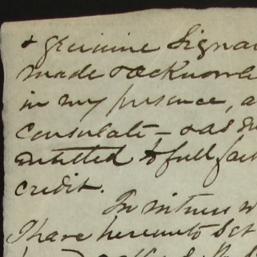 & genuine Signa
made & acknowle
in my presence, a
Consulate - and
entitled to full fai
credit.
In witness w
I have hereunto set